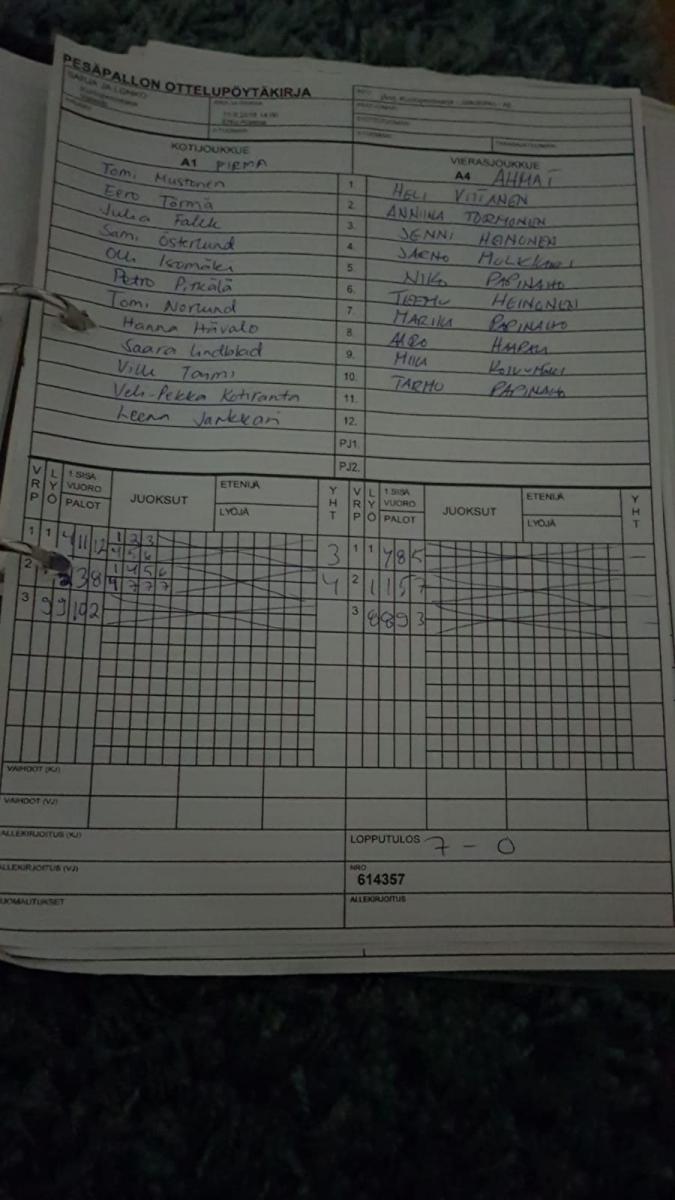 PESÄPALLON OTTELUPÖYTÄKIRJA
SARJA JA LOHKO
KOTIJOUKKUE
VIERASJOUKKUE
A1 PIRMA
A4 AHMAT
Tomi Mustonen
1 HELI VIITANEN
Eero Törmä
2. ANNIINA TÖRMÖNEN
Julia Falck
3. JENNI HEINONEN
Sami Österlund
4. JARNO
Olli Isomäki
5. NIKO PAPINAHO
Petro Pitkälä
6. TEEMU HEINONEN
Tomi Norlund
7. MARIKA PAPINAHO
Hanna Hävalo
8.
Saara Lindblad
9. MIIA
Ville Tammi
10. TARMO PAPINAHO
Veli-Pekka Kotiranta
11.
Leena Jankkari
12.
PJ1.
PJ2.
VRP LYÖ 1.SISÄ VUORO PALOT JUOKSUT ETENIJÄ LYÖJÄ YHT
VRP LYÖ 1.SISÄ VUORO PALOT JUOKSUT ETENIJÄ LYÖJÄ YHT
1 1 4 11 12 1 2 3 3
4 5 6
1 1 7 8 5 –
2 3 8 1 4 5 6 4
4 7 7 7
2 1 1 5 7
3 9 9 10 2
3 8 8 9 3
VAIHDOT (KJ)
VAIHDOT (VJ)
ALLEKIRJOITUS (KJ)
LOPPUTULOS 7 - 0
ALLEKIRJOITUS (VJ)
NRO
614357
HUOMAUTUKSET
ALLEKIRJOITUS